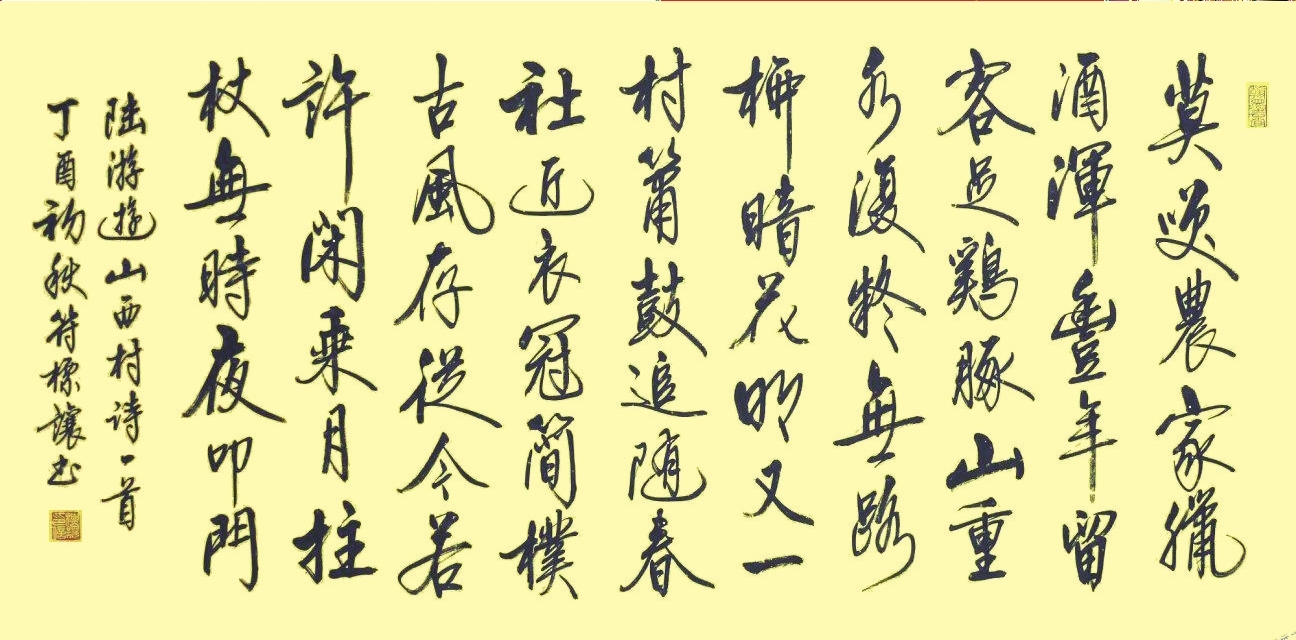 莫咲農家臘
酒渾豐年留
客足鷄豚山重
水復疑無路
柳暗花明又一
村簫鼓追随春
社近衣冠簡樸
古風存從今若
許閑乘月拄
杖無時夜叩門
陆游遊山西村诗一首
丁酉初秋符標讓书